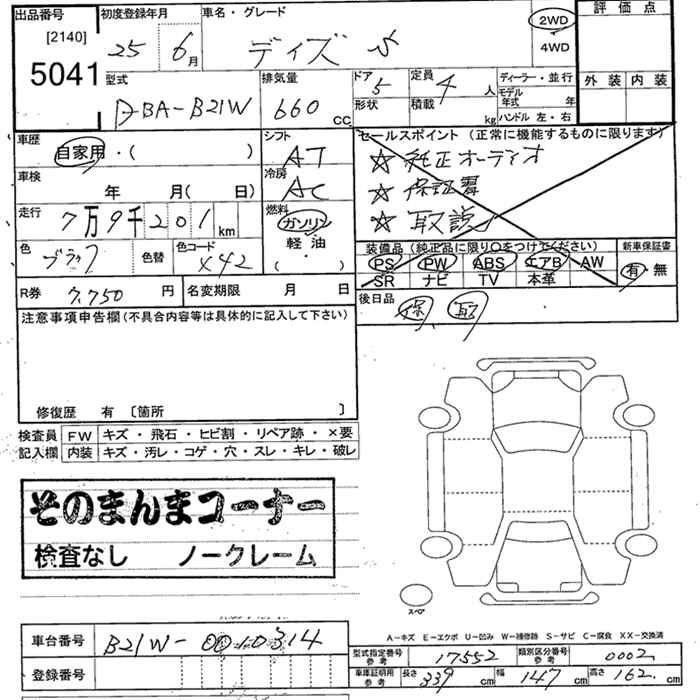 出品番号 初度登録年月 車名・グレード 評価点
[2140] 25 6月 デイズ S 2WD
5041 4WD
型式 排気量 ドア 5 定員 4人 ディーラー・並行 外装 内装
DBA-B21W 660 cc 形状 積載 kg モデル年式 年
ハンドル 左・右
車歴 シフト セールスポイント(正常に機能するものに限ります)
自家用・( ) AT ☆ 純正オーディオ
車検 冷房 ☆ 保証書
年 月( 日) AC ☆ 取説
走行 燃料
7万9千201km ガソリン
色 色コード 軽油 装備品(純正品に限り○をつけてください) 新車保証書
ブラック 色替 X42 ( ) PS PW ABS エアB AW 有・無
SR ナビ TV 本革
R券 7,750円 名変期限 月 日 後日品
注意事項申告欄(不具合内容等は具体的に記入して下さい) 保 取
修復歴 有 〔箇所 〕
検査員 FW キズ・飛石・ヒビ割・リペア跡・×要
記入欄 内装 キズ・汚レ・コゲ・穴・スレ・キレ・破レ
そのまんまコーナー
検査なし ノークレーム
スペア
A-キズ E-エクボ U-凹み W-補修跡 S-サビ C-腐食 XX-交換済
車台番号 B21W-0010314
型式指定番号 参考 17552 類別区分番号 参考 0002
登録番号 車庫証明用 参考 長さ 339cm 幅 147cm 高さ 162cm